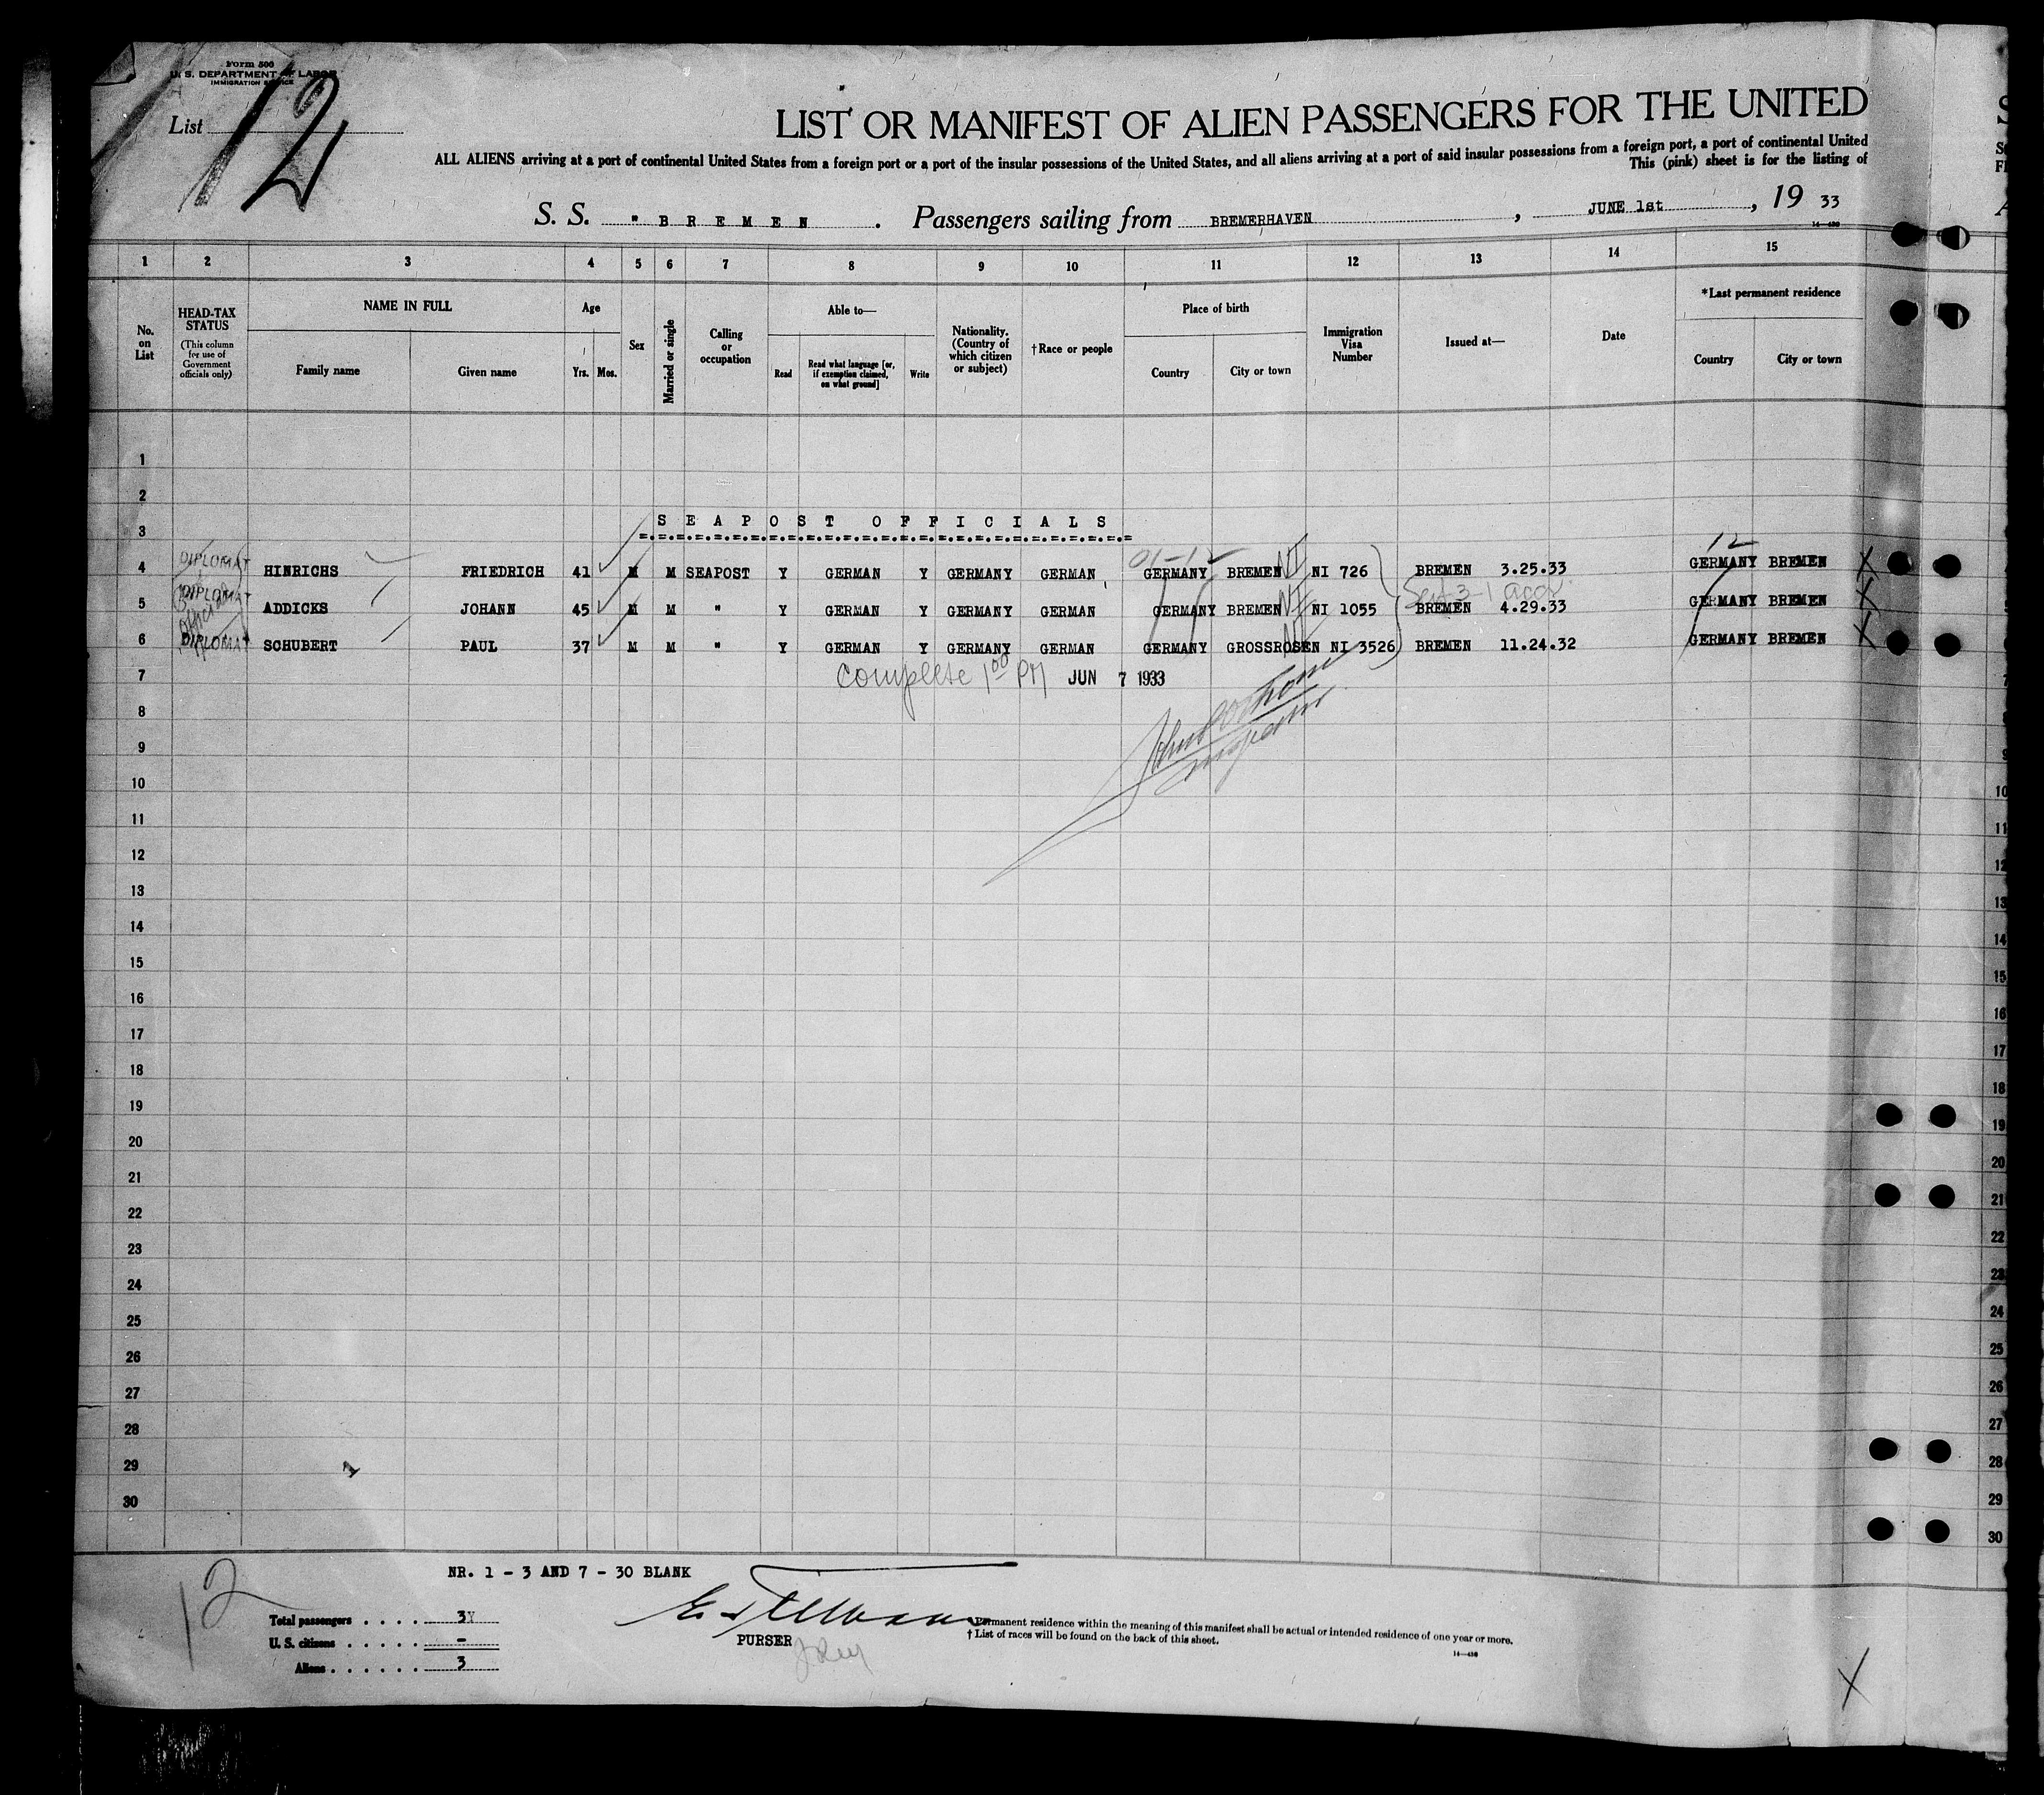 Form 500
U. S. DEPARTMENT OF LABOR
IMMIGRATION SERVICE
List 12
LIST OR MANIFEST OF ALIEN PASSENGERS FOR THE UNITED
ALL ALIENS arriving at a port of continental United States from a foreign port or a port of the insular possessions of the United States, and all aliens arriving at a port of said insular possessions from a foreign port, a port of continental United
This (pink) sheet is for the listing of
S. S. " B R E M E N . Passengers sailing from BREMERHAVEN , JUNE 1st , 19 33
14—430
1 2 3 4 5 6 7 8 9 10 11 12 13 14 15
No. on List
HEAD-TAX STATUS
(This column for use of Government officials only)
NAME IN FULL
Family name Given name
Age
Yrs. Mos.
Sex
Married or single
Calling or occupation
Able to—
Read Read what language [or, if exemption claimed, on what ground] Write
Nationality. (Country of which citizen or subject)
†Race or people
Place of birth
Country City or town
Immigration Visa Number
Issued at—
Date
*Last permanent residence
Country City or town
1
2
3 S E A P O S T O F F I C I A L S
01-12 12
4 DIPLOMAT HINRICHS FRIEDRICH 41 M M SEAPOST Y GERMAN Y GERMANY GERMAN GERMANY BREMEN NI 726 BREMEN 3.25.33 GERMANY BREMEN X
5 DIPLOMAT ADDICKS JOHANN 45 M M " Y GERMAN Y GERMANY GERMAN GERMANY BREMEN NI 1055 BREMEN 4.29.33 GERMANY BREMEN X
6 DIPLOMAT SCHUBERT PAUL 37 M M " Y GERMAN Y GERMANY GERMAN GERMANY GROSSROSEN NI 3526 BREMEN 11.24.32 GERMANY BREMEN X
7 complete 1 00 PM JUN 7 1933
8
9
10 10
11 11
12 12
13 13
14 14
15 15
16 16
17 17
18 18
19 19
20 20
21 21
22 22
23 23
24 24
25 25
26 26
27 27
28 28
29 29
30 30
NR. 1 - 3 AND 7 - 30 BLANK
12
Total passengers . . . . 3
U. S. citizens . . . . . -
Aliens . . . . . . 3
PURSER
*Permanent residence within the meaning of this manifest shall be actual or intended residence of one year or more.
† List of races will be found on the back of this sheet.
14—430
X